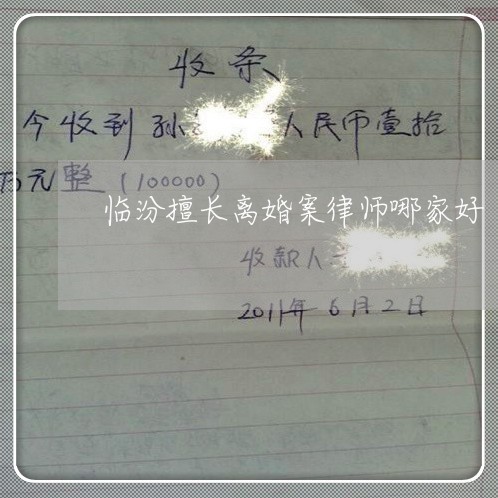 收条
今收到孙 人民币壹拾
万元整(100000)
临汾擅长离婚案律师哪家好
收款人
2011年6月2日